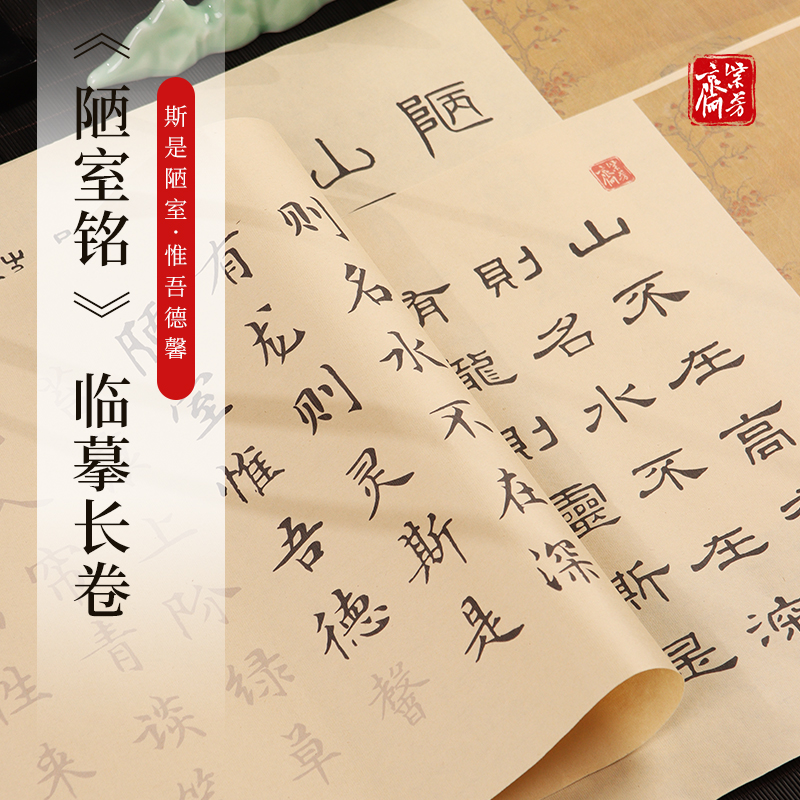 《陋室铭》临摹长卷
斯是陋室·惟吾德馨
紫芳
陋
山
山不在高
則名水不在深
有龍則靈斯是
则名水不在深
有龙则灵斯是
陋室惟吾德馨
上阶绿草
入帘青谈笑
来